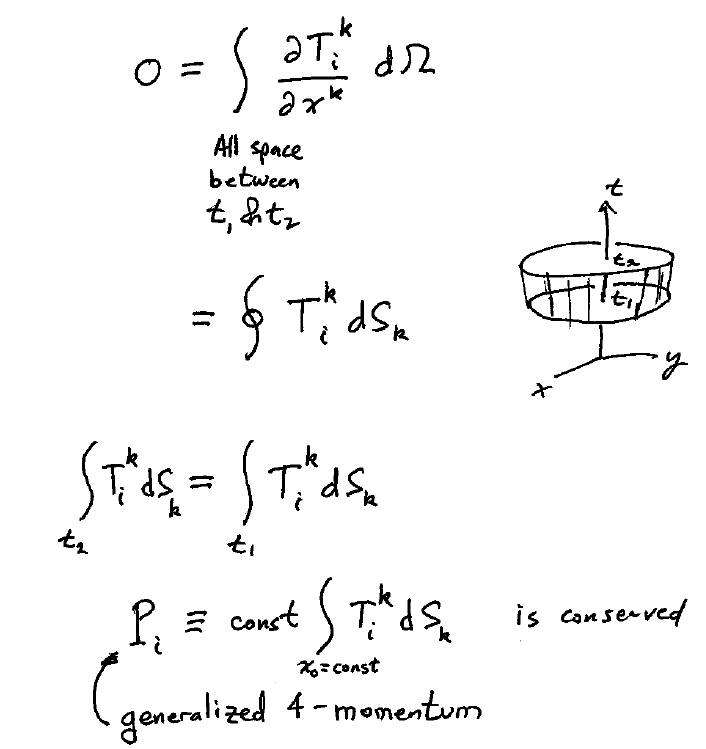 0 = ∫ ∂T_i^k / ∂x^k dΩ
All space
between
t₁ & t₂
= ∮ T_i^k dS_k
t
t₂
t₁
x
y
∫_{t₂} T_i^k dS_k = ∫_{t₁} T_i^k dS_k
P_i ≡ const ∫_{x₀=const} T_i^k dS_k is conserved
generalized 4-momentum